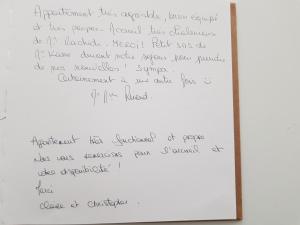 Appartement très agréable, bien équipé
et très propre. Accueil très chaleureux
de Mr Rachida. MERCI! Petit SOS de
Mr Kiané durant notre séjour pour prendre
de nos nouvelles! Sympa
Certainement à une autre fois
Mr Mme
Appartement très fonctionnel et propre
Nous vous remercions pour l'accueil et
votre disponibilité!
Merci
Claire et Christopher.